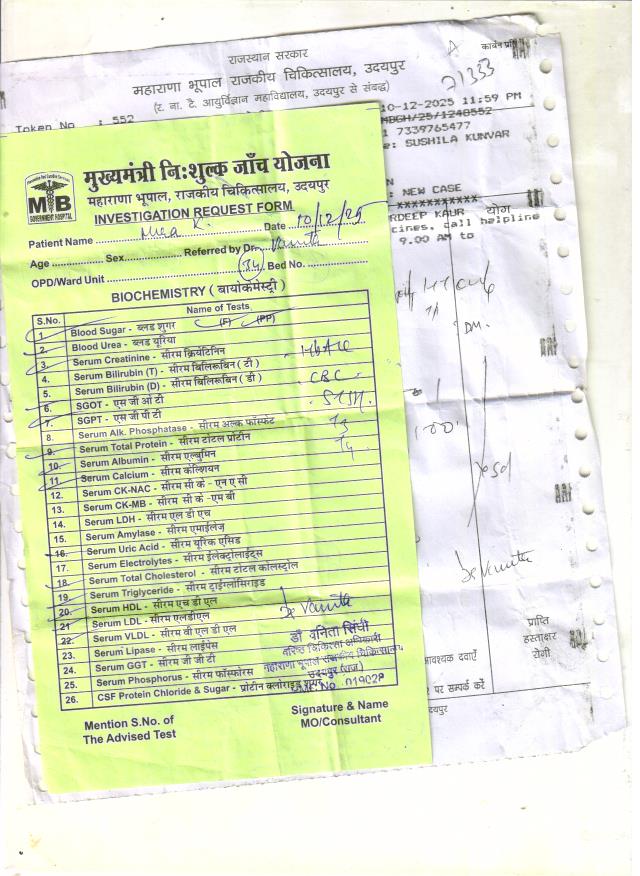 राजस्थान सरकार
कार्बन प्रति
महाराणा भूपाल राजकीय चिकित्सालय, उदयपुर
(र. ना. टै. आयुर्विज्ञान महाविद्यालय, उदयपुर से संबद्ध)
21333
Token No : 552
10-12-2025 11:59 PM
MBGH/25/1240552
7339765477
SUSHILA KUNVAR
: NEW CASE
RDEEP KAUR योग
cines, call helpline
9.00 AM to
HTC
DM.
100
Dr Vanita
प्राप्ति
हस्ताक्षर
रोगी
आवश्यक दवाएँ
पर सम्पर्क करें
दयपुर
MB
GOVERNMENT HOSPITAL
मुख्यमंत्री निःशुल्क जाँच योजना
महाराणा भूपाल, राजकीय चिकित्सालय, उदयपुर
INVESTIGATION REQUEST FORM
Patient Name K. Date 10/12/25
Age Sex Referred by Dr. Vanita
OPD/Ward Unit 34 Bed No.
BIOCHEMISTRY ( बायोकेमेस्ट्री )
S.No. Name of Tests
1. Blood Sugar - ब्लड शुगर (F) (PP)
2. Blood Urea - ब्लड यूरिया
3. Serum Creatinine - सीरम क्रियेटिनिन
4. Serum Bilirubin (T) - सीरम बिलिरूबिन ( टी ) HbA1C
5. Serum Bilirubin (D) - सीरम बिलिरूबिन ( डी )
6. SGOT - एस जी ओ टी CBC
7. SGPT - एस जी पी टी
8. Serum Alk. Phosphatase - सीरम अल्क फॉस्फेट T3
9. Serum Total Protein - सीरम टोटल प्रोटीन T4
10. Serum Albumin - सीरम एल्बुमिन
11. Serum Calcium - सीरम कैल्शियन
12. Serum CK-NAC - सीरम सी के - एन ए सी
13. Serum CK-MB - सीरम सी के -एम बी
14. Serum LDH - सीरम एल डी एच
15. Serum Amylase - सीरम एमाईलेज
16. Serum Uric Acid - सीरम यूरिक एसिड
17. Serum Electrolytes - सीरम ईलेक्ट्रोलाईट्स
18. Serum Total Cholesterol - सीरम टोटल कोलस्ट्रोल
19. Serum Triglyceride - सीरम ट्राईग्लॉसिराइड
20. Serum HDL - सीरम एच डी एल
21 Serum LDL - सीरम एलडीएल Dr Vanita
22. Serum VLDL - सीरम वी एल डी एल
23. Serum Lipase - सीरम लाईपेस
24. Serum GGT - सीरम जी जी टी
25. Serum Phosphorus - सीरम फॉस्फोरस
26. CSF Protein Chloride & Sugar - प्रोटीन क्लोराइड शुगर
डॉ वनिता सिंघी
वरिष्ठ चिकित्सा अधिकारी
महाराणा भूपाल राजकीय चिकित्सालय
उदयपुर (राज)
No 019028
Mention S.No. of
The Advised Test
Signature & Name
MO/Consultant